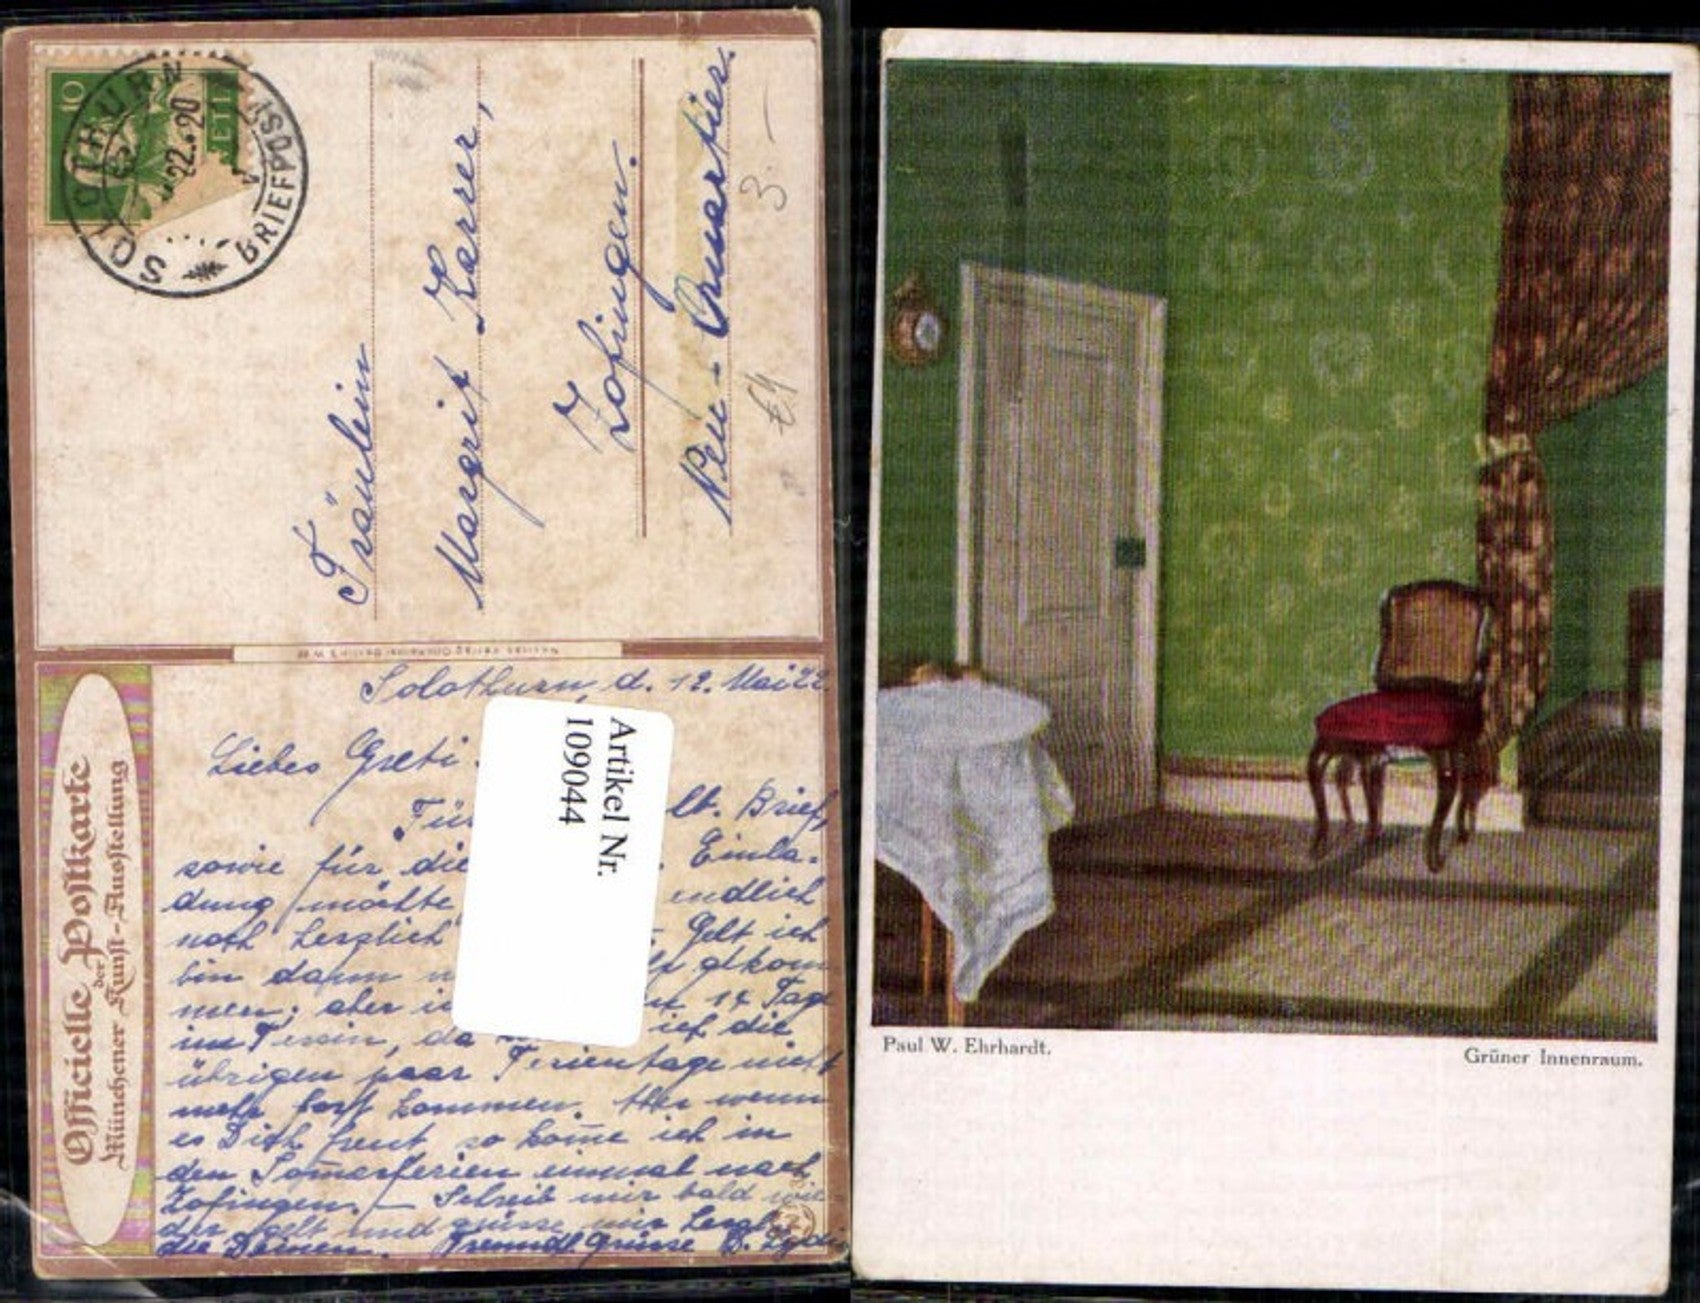 10
SOLOTHURN
BRIEFPOST
Fräulein
Margrit Karrer,
Zofingen.
Neu-Quartier.
3.-
Officielle Postkarte
der
Münchener Kunst-Ausstellung
Solothurn, d. 12. Mai 22
Liebes Greti
Artikel Nr.
109044
lt. Brief,
sowie für die Einla-
dung möchte endlich
noch herzlich Gelt ich
bin dann
men; aber 14 Tage
im Tessin, da ich die
übrigen paar Ferientage nicht
mehr fort kommen. Aber wenn
es Dich freut so kom̅e ich in
den Som̅erferien einmal nach
Zofingen. – Schreib mir bald wie-
der gelt und grüsse mir herzl.
die Deinen. Freundl. Grüsse
Paul W. Ehrhardt.
Grüner Innenraum.